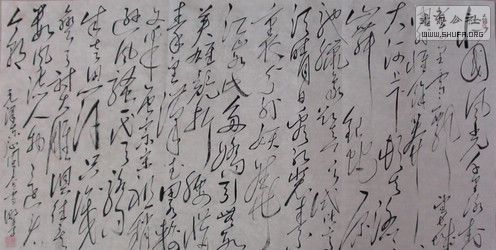 北国风光千里冰封
万里雪飘望长城
内外惟余莽莽
大河上下顿失滔滔
山舞银蛇原
驰蜡象欲与天公试比高
须晴日看红装素
裹分外妖娆
江山如此多娇引无数
英雄竞折腰惜
秦皇汉武略输
文采唐宗宋祖稍
逊风骚一代天骄
成吉思汗只识
弯弓射大雕俱往矣
数风流人物还看
今朝
毛泽东词
WWW.SHUFA.ORG